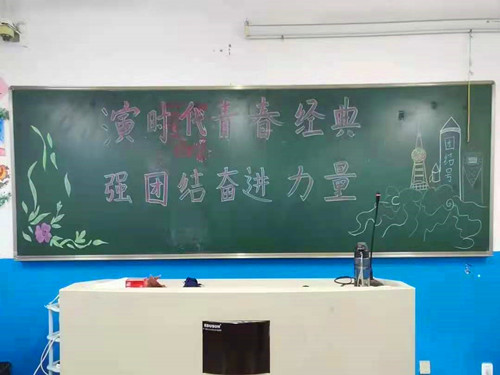 演时代青春经典
强团结奋进力量
团结号